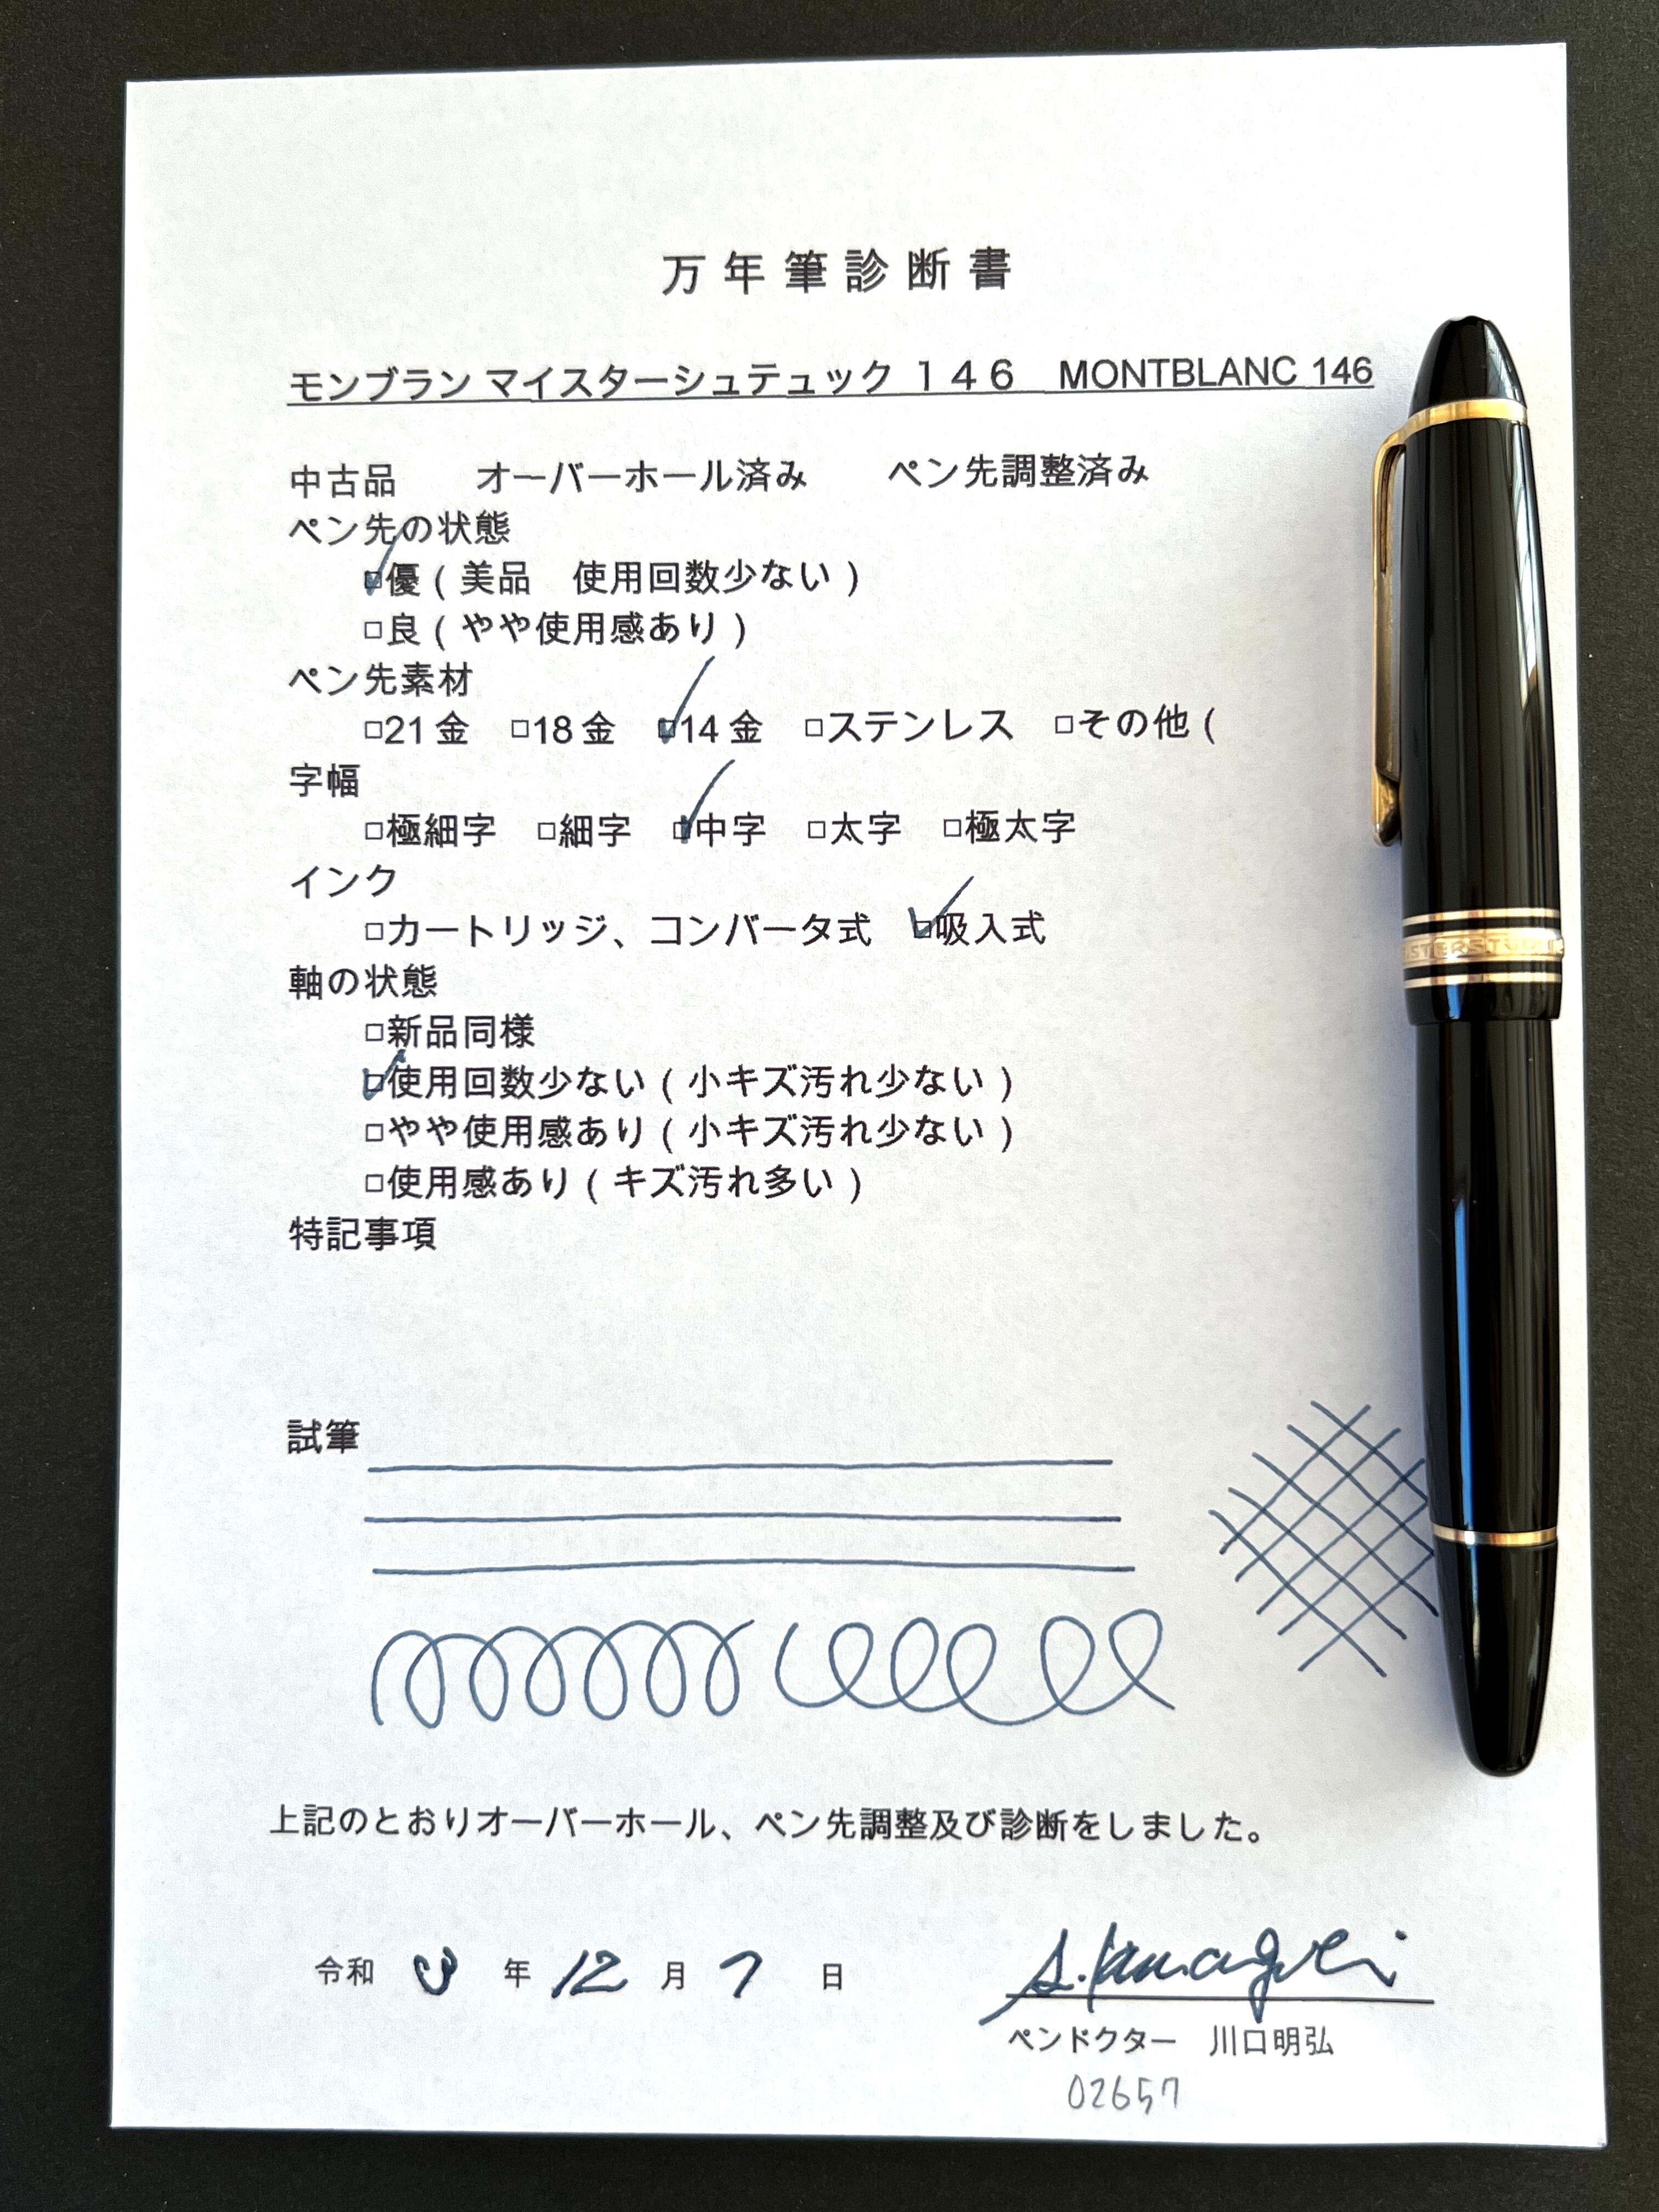 万年筆診断書
モンブラン マイスターシュテュック １４６　MONTBLANC 146
中古品　　オーバーホール済み　　ペン先調整済み
ペン先の状態
☑優（美品　使用回数少ない）
□良（やや使用感あり）
ペン先素材
□21金　□18金　☑14金　□ステンレス　□その他（
字幅
□極細字　□細字　☑中字　□太字　□極太字
インク
□カートリッジ、コンバータ式　☑吸入式
軸の状態
□新品同様
☑使用回数少ない（小キズ汚れ少ない）
□やや使用感あり（小キズ汚れ少ない）
□使用感あり（キズ汚れ多い）
特記事項
試筆
上記のとおりオーバーホール、ペン先調整及び診断をしました。
令和　3　年 12 月 7　日
ペンドクター　川口明弘
02657